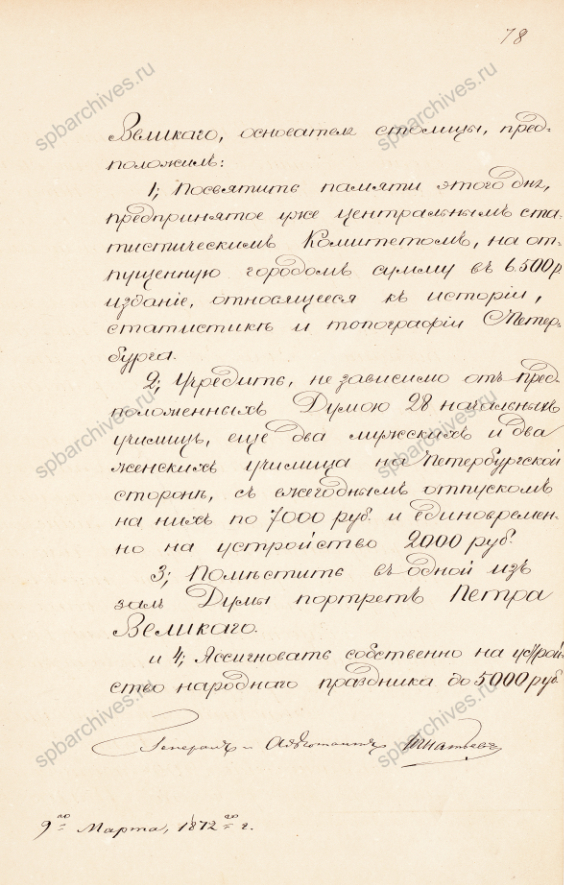 78
Великаго, основателя столицы, пред-
положилъ:
1; Посвятить памяти этого дня,
предпринятое уже Центральнымъ ста-
тистическимъ Комитетомъ, на от-
пущенную городомъ сумму въ 6500 р
изданіе, относящееся къ исторіи,
статистикѣ и топографіи СПетер-
бурга.
2; Учредить, не зависимо отъ пред-
положенныхъ Думою 28 начальныхъ
училищъ, еще два мужскихъ и два
женскихъ училища на Петербургской
сторонѣ, съ ежегоднымъ отпускомъ
на нихъ по 7000 руб. и единовремен-
но на устройство 2000 руб.
3; Помѣстить въ одной изъ
залъ Думы портретъ Петра
Великаго.
и 4; Ассигновать собственно на устрой-
ство народнаго праздника до 5000 руб
Генералъ-Адъютантъ Игнатьевъ
9го Марта, 1872го г.
spbarchives.ru
spbarchives.ru
spbarchives.ru
spbarchives.ru
spbarchives.ru
spbarchives.ru
spbarchives.ru
spbarchives.ru